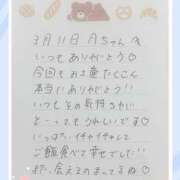 3月11日 Aちゃんへ
いつもありがとう♡
今回もお土産たくさん
本当にありがとう!!
いつもその気持ちが
とーってもうれしいです♡
いっぱいイチャイチャして
ご飯食べて幸せでした!!
また、会えるのまってるね♡